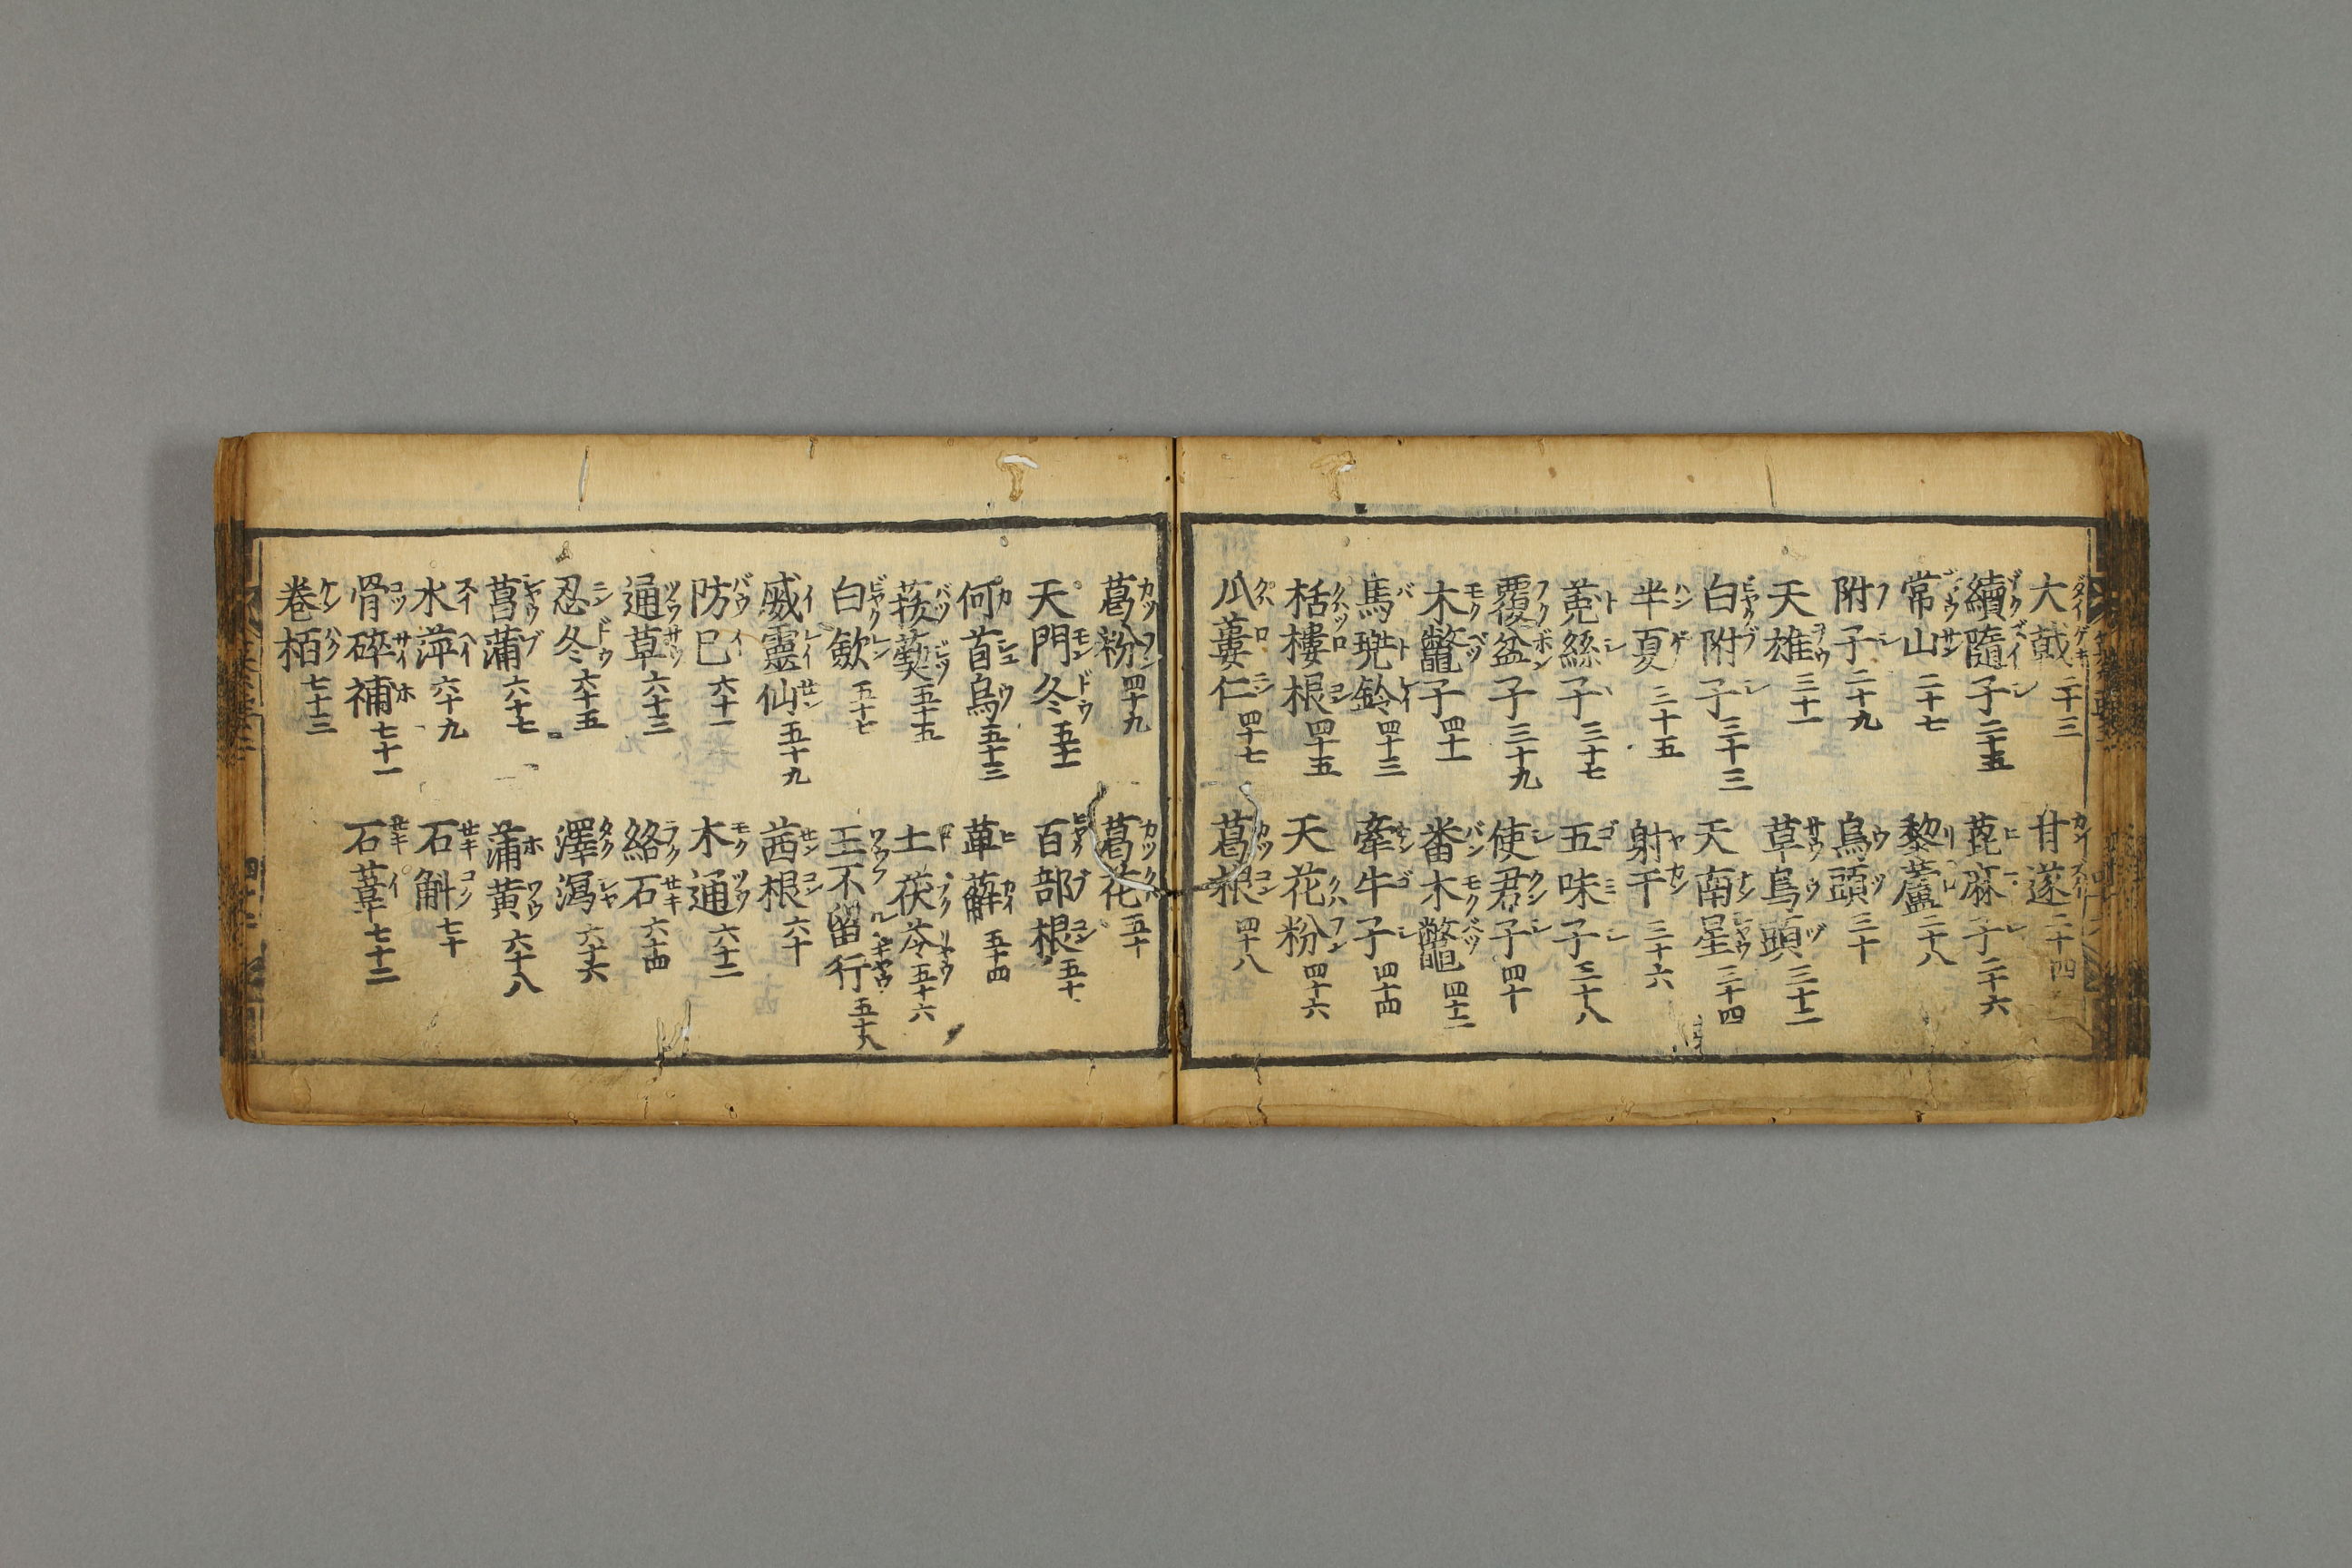 大戟 二十三 甘遂 二十四
續隨子 二十五 蓖麻子 二十六
常山 二十七 藜蘆 二十八
附子 二十九 烏頭 三十
天雄 三十一 草烏頭 三十二
白附子 三十三 天南星 三十四
半夏 三十五 射干 三十六
菟絲子 三十七 五味子 三十八
覆盆子 三十九 使君子 四十
木鼈子 四十一 番木鼈 四十二
馬兜鈴 四十三 牽牛子 四十四
栝樓根 四十五 天花粉 四十六
瓜蔞仁 四十七 葛根 四十八
葛粉 四十九 葛花 五十
天門冬 五十一 百部根 五十二
何首烏 五十三 萆薢 五十四
菝葜 五十五 土茯苓 五十六
白歛 五十七 王不留行 五十八
威靈仙 五十九 茜根 六十
防已 六十一 木通 六十二
通草 六十三 絡石 六十四
忍冬 六十五 澤瀉 六十六
菖蒲 六十七 蒲黃 六十八
水萍 六十九 石斛 七十
骨碎補 七十一 石葦 七十二
巻栢 七十三